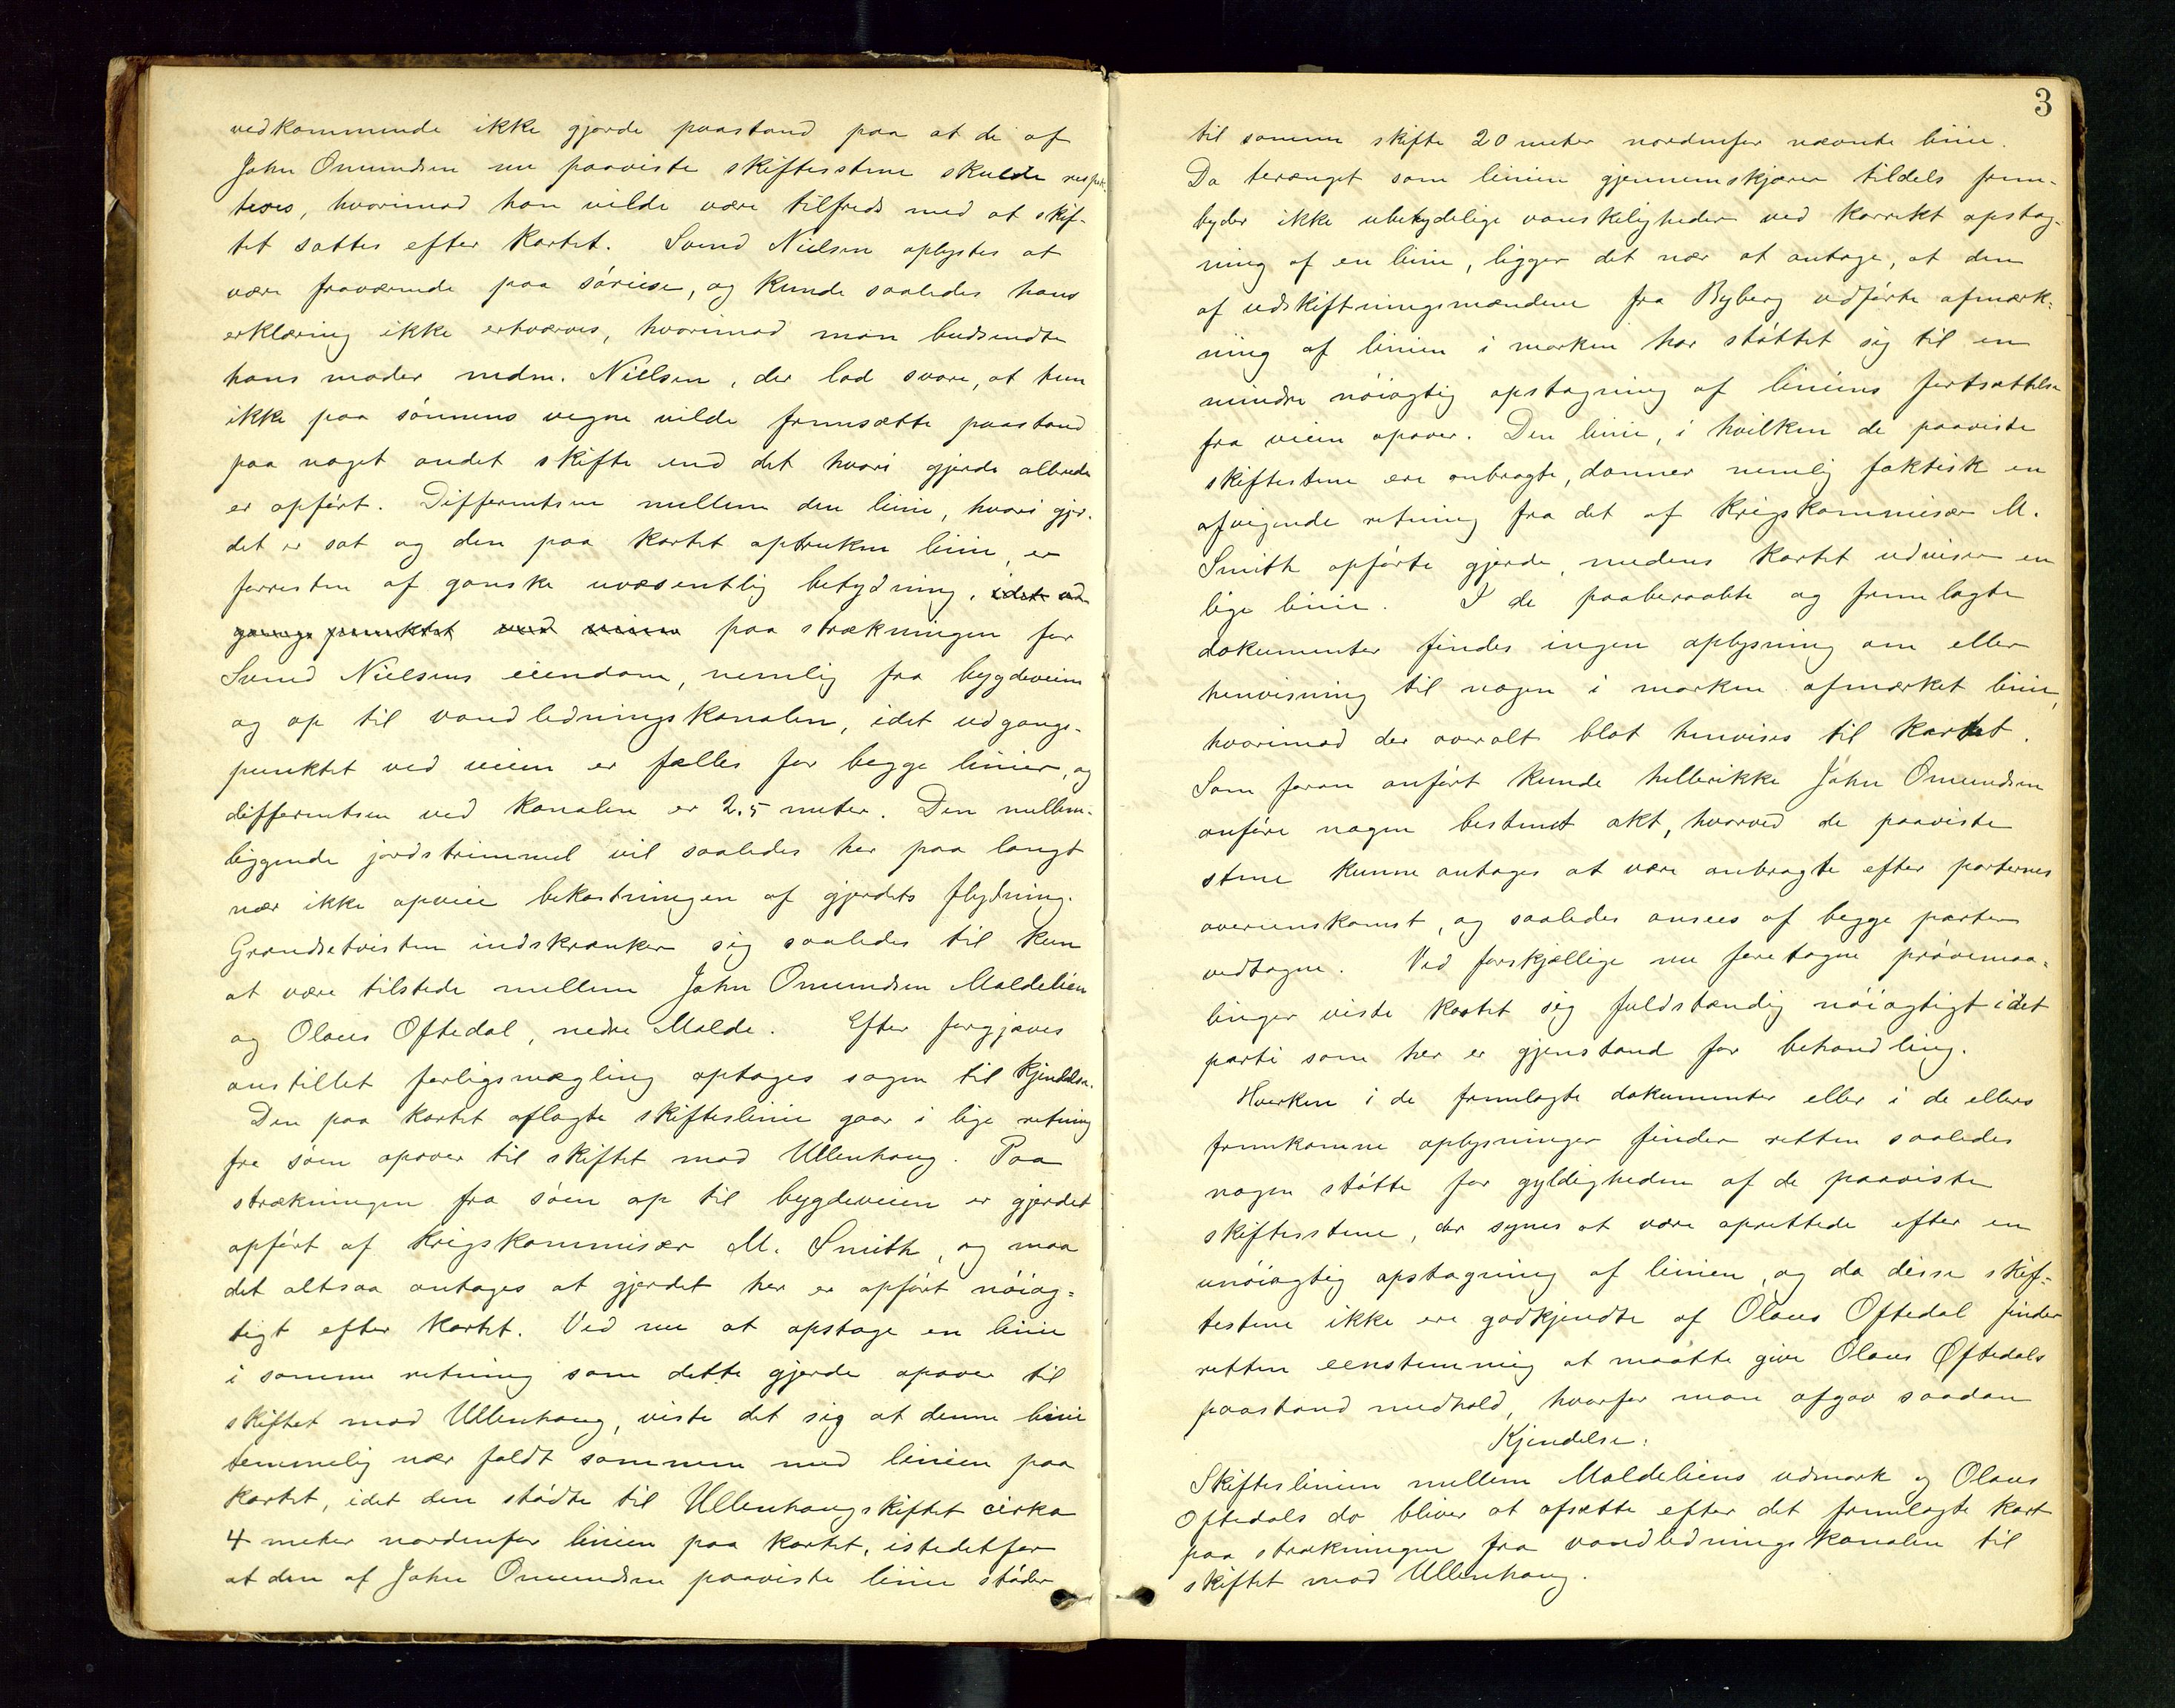 vedkommende ikke gjorde paastand paa at de af
John Omundsen nu paaviste skiftesstene skulde respek-
teres, hvorimod han vilde være tilfreds med at skif-
tet sattes efter kartet. Svend Nielsen oplystes at
være fraværende paa söreise, og kunde saaledes hans
erklæring ikke erhværves, hvorimod man budsendte
hans moder mdm. Nielsen, der lod svare, at hun
ikke paa sönnens vegne vilde fremsætte paastand
paa noget andet skifte end det hvori gjerde allerede
er opfört. Differentsen mellem den linie, hvori gjer-
det er sat og den paa kartet optrukne linie, er
forresten af ganske uvæsentlig betydning, idet ud-
gangspunktet ved veien paa strækningen for
Svend Nielsens eiendom, nemlig fra bygdeveien
og op til vandledningskanalen, idet udgangs-
punktet ved veien er fælles for begge linier, og
differentsen ved kanalen er 2,5 meter. Den mellem-
liggende jordstrimmel vil saaledes her paa langt
nær ikke opveie bekostningen af gjerdets flytning.
Grændsetvisten indskrænker sig saaledes til kun
at være tilstede mellem John Omundsen Maldelien
og Olaus Oftedal, nedre Malde. Efter forgjæves
anstillet forligsmægling optages sagen til kjendelse.
Den paa kartet aflagte skifteslinie gaar i lige retning
fra söen opover til skiftet mod Ullenhaug. Paa
strækningen fra söen op til bygdeveien er gjerdet
opfört af krigskommisær M. Smith, og maa
det altsaa antages at gjerdet her er opfört nöiag-
tigt efter kartet. Ved nu at opstage en linie
i samme retning som dette gjerde opover til
skiftet mod Ullenhaug, viste det sig at denne linie
temmelig nær faldt sammen med linien paa
kartet, idet den stödte til Ullenhaugskiftet cirka
4 meter nordenfor linien paa kartet, istedetfor
at den af John Omundsen paaviste linie stöder
3
til samme skifte 20 meter nordenfor nævnte linie.
Da terænget som linien gjennemskjærer tildels frem-
byder ikke ubetydelige vanskeligheder ved korrekt opstag-
ning af en linie, ligger det nær at antage, at den
af udskiftningsmændene fra Byberg udförte afmærk-
ning af linien i marken har stöttet sig til en
mindre nöiagtig opstagning af liniens fortsættelse
fra veien opover. Den linie, i hvilken de paaviste
skiftestene ere anbragte, danner nemlig faktisk en
afvigende retning fra det af krigskommisær M.
Smith opförte gjerde, medens kartet udviser en
lige linie. I de paaberaabte og fremlagte
dokumenter findes ingen oplysning om eller
henvisning til nogen i marken afmærket linie,
hvorimod der overalt blot henvises til kartet.
Som foran anfört kunde hellerikke John Omundsen
anföre nogen bestemt akt, hvorved de paaviste
stene kunne antages at være anbragte efter parternes
overenskomst, og saaledes ansees af begge parter
vedtagne. Ved forskjellige nu foretagne prövemaa-
linger viste kartet sig fuldstændig nöiagtigt i det
parti som her er gjenstand for behandling.
Hverken i de fremlagte dokumenter eller i de ellers
fremkomne oplysninger finder retten saaledes
nogen stötte for gyldigheden af de paaviste
skiftesstene, der synes at være oprettede efter en
unöiagtig opstagning af linien, og da disse skif-
testene ikke ere godkjendte af Olaus Oftedal finder
retten eenstemmig at maatte give Olaus Oftedals
paastand medhold, hvorfor man afgav saadan
Kjendelse:
Skifteslinien mellem Maldeliens udmark og Olaus
Oftedals do bliver at afsætte efter det fremlagte kart
paa strækningen fra vandledningskanalen til
skiftet mod Ullenhaug.